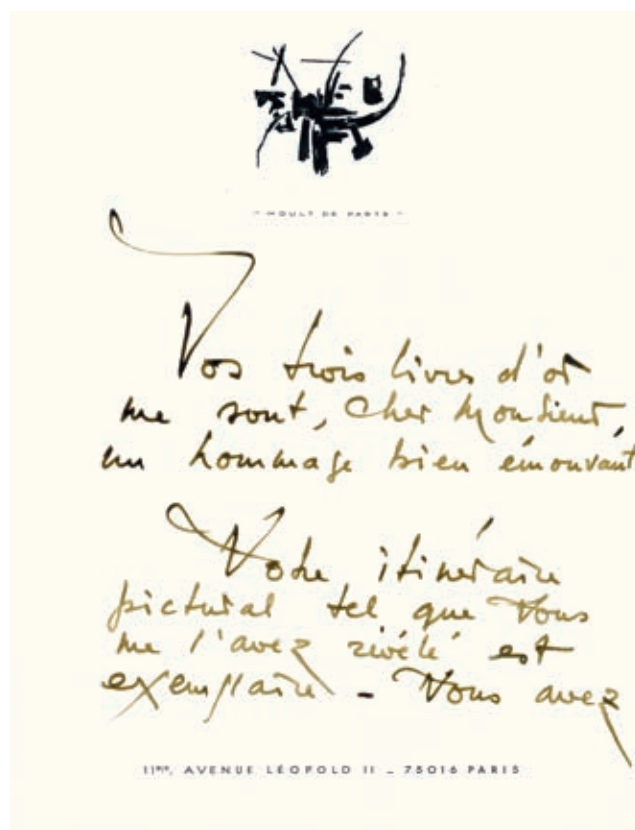 " MOULT DE PARTS "
Vos trois livres d'or
me sont, cher Monsieur,
un hommage bien émouvant
Votre itinéraire
pictural tel que vous
me l'avez révélé est
exemplaire - Vous avez
AVENUE LÉOPOLD II _ 75016 PARIS